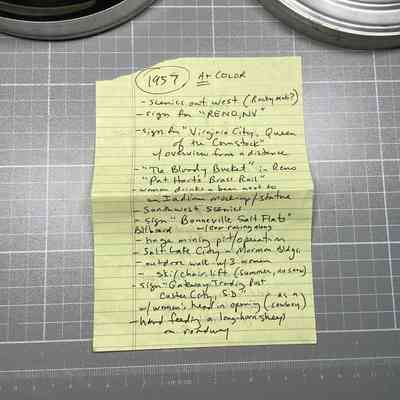 1957 A+ COLOR
- scenics out west (Rocky mts?)
- sign for "RENO, NV"
- sign for "Virginia City, Queen
of the Comstock"
w/ overview from a distance
- "The Bloody Bucket" in Reno
"Pat Hart's Brass Rail"
- woman drinks a beer next to
an Indian mock-up/statue
- Southwest scenics
- sign "Bonneville Salt Flats"
Billboard w/ car racing along
- huge mining pit/operation
- Salt Lake City - Mormon Bldgs.
- outdoor walk w/ 3 women
- ski/chair lift (summer, no snow)
- sign "Gateway Trading Post
Custer City, S.D."
- w/ women's head in opening (as a cowboy)
- hand feeding a longhorn sheep
on roadway